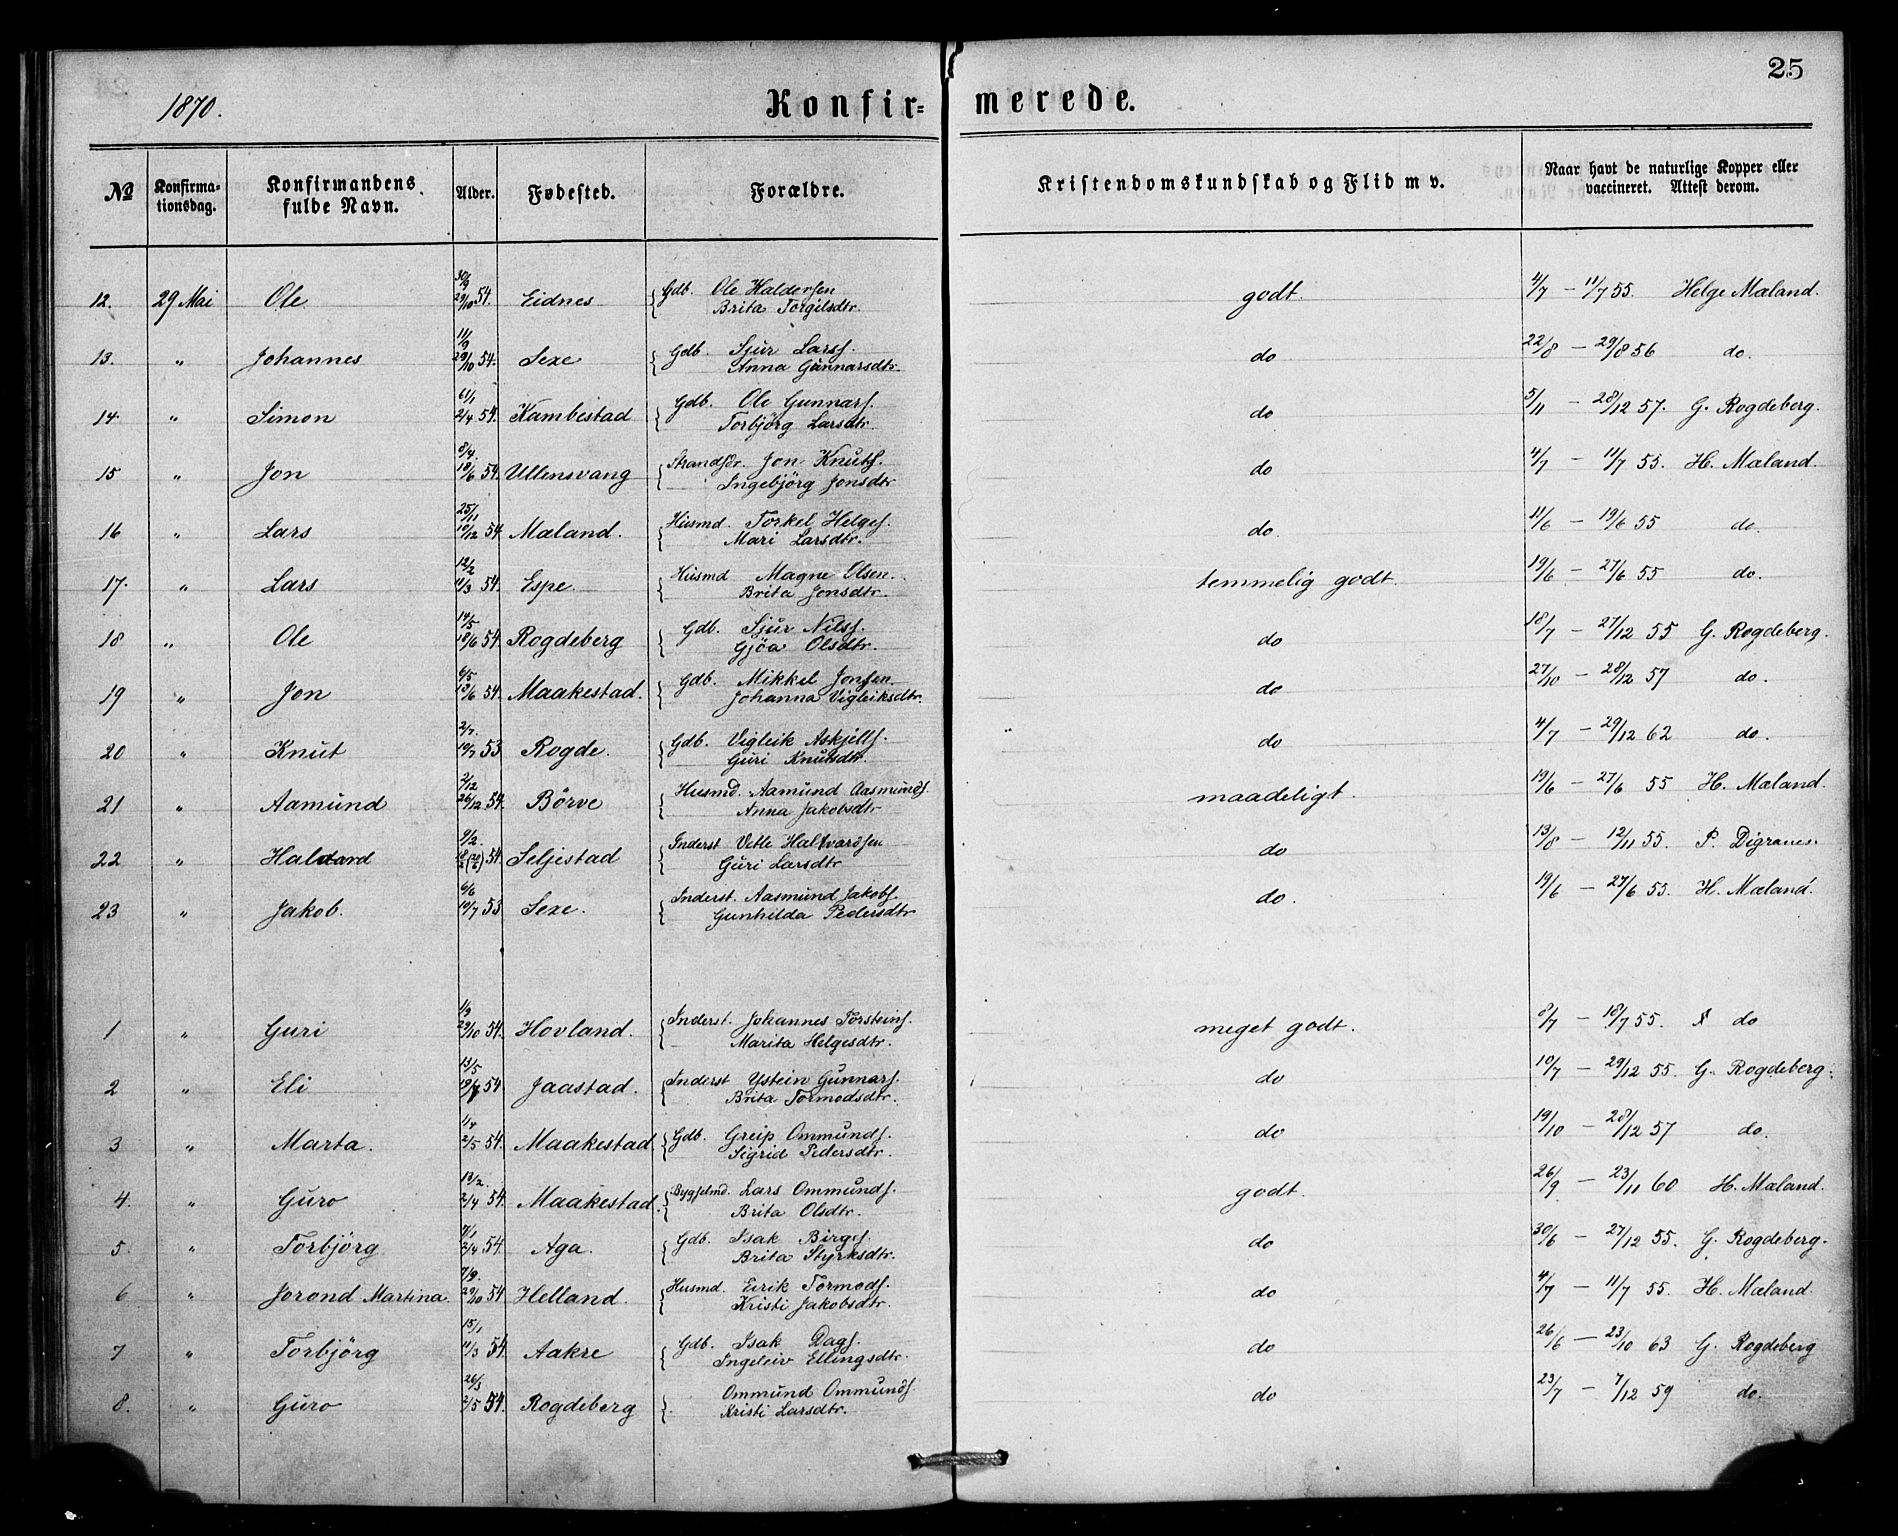 25
1870.
Konfir= merede.
No
Konfirma-
tionsdag.
Konfirmandens
fulde Navn.
Alder.
Fødested.
Forældre.
Kristendomskundskab og Flid m v.
Naar havt de naturlige Kopper eller
vaccineret. Attest derom.
30/9
12. 29 Mai Ole 29/10 54. Eidnes { Gdb. Ole Haldorsen godt. 4/7 — 11/7 55. Helge Mæland.
Brita Torgilsdtr.
11/9
13. " Johannes 29/10 54. Sexe { Gdb. Sjur Larss. do 22/8 — 29/8 56 do.
Anna Gunnarsdtr.
14. " Simon 2/4 54. Kambestad { Gdb. Ole Gunnars. do 5/11 — 28/12 57. G. Rogdeberg.
Torbjörg Larsdtr.
8/4.
15 " Jon 18/6 54. Ullensvang { Strandsdr. Jon Knuts. do 4/7 — 11/7 55. H. Mæland.
Ingebjörg Jonsdtr
25/11
16 " Lars 10/12 54 Mæland. { Husmd. Torkel Helges. do. 11/6 — 19/6 55 do.
Mari Larsdtr.
12/2
17. " Lars 11/3 54. Espe. { Husmd Magne Olsen. temmelig godt. 19/6 — 27/6 55 do.
Brita Jonsdtr.
14/5
18 " Ole 18/6 54. Rogdeberg { Gdb. Sjur Nilss. do 18/7 — 27/12 55 G. Rogdeberg.
Gjöa Olsdtr.
6/5
19 " Jon 18/6 54. Maakestad. { Gdb. Mikkel Jonsen. do 27/10 — 28/12 57 do.
Johanna Vigleiksdtr.
2/7.
20 " Knut 19/7 53 Rogde. { Gdb. Vigleik Askjells. do 4/7 — 29/12 62 do.
Guri Knutsdtr.
2/12
21 " Aamund 26/12 54. Börve { Husmd. Aamund Aasmunds. maadeligt. 19/6 — 27/6 55 H. Mæland.
Anna Jakobsdtr
9/2.
22 " Halvard 54. Seljestad { Inderst Vetle Halvardsen do 13/8 — 12/11 55. P. Digranes.
Guri Larsdtr
6/6
23 " Jakob. 10/7 53 Sexe. { Inderst. Aasmund Jakobs. do. 19/6 — 27/6 55. H. Mæland.
Gunhilda Pedersdtr
1/9
1 " Guri 29/10 54. Hovland. { Inderst. Johannes Torsteins. meget godt. 8/7 — 18/7 55. do
Marita Helgesdtr.
13/5
2 " Eli 19/7 54 Jaastad. { Inderst Ystein Gunnars. do 10/7 — 29/12 55. G. Rogdeberg.
Brita Tormodsdtr.
1/4
3 " Marta. 2/5 54. Maakestad. { Gdb. Greip Ommunds. do 19/10 — 28/12 57 do.
Sigrid Pedersdtr.
13/2.
4. " Guro 2/4 54. Maakestad. { Bygselmd. Lars Ommunds. godt. 26/9 — 23/11 60 H. Mæland.
Brita Olsdtr.
5. " Torbjörg 2/4 54. Aga. { Gdb. Isak Birges. do 30/6 — 27/12 55. G. Rogdeberg.
Brita Styrksdtr.
7/9.
6 " Jorond Martina 29/10 54 Helland. { Husmd. Eirik Tormods. do 4/7 — 11/7 55. H. Mæland.
Kristi Jakobsdtr.
15/1
7 " Torbjörg 11/3 54. Aakre { Gdb. Isak Dags. do 26/6 — 23/10 63 G. Rogdeberg
Ingeleiv Ellingsdtr.
26/3
8. " Guro 2/5 54. Rogdeberg { Ommund Ommunds. do 23/7 — 7/12 59 do.
Kristi Larsdtr.